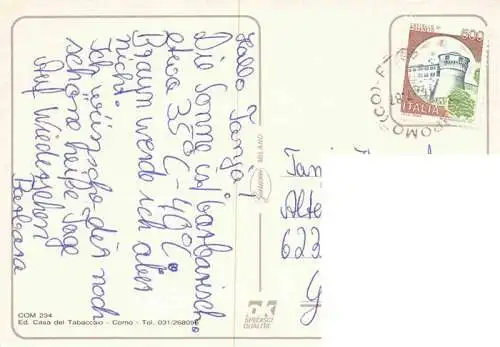 Hallo Tanja!
Die Sonne ist barbarisch.
etwa 35°C - 40°C.
Braun werde ich aber
nicht.
Ich wünsche dir noch
schöne heiße Tage
Auf Wiedersehen
Barbara
COM 234
Ed. Casa del Tabaccaio - Como - Tel. 031/268096
MILANO
SPEDISCI
QUALITÀ
500
ITALIA
Tan
Alte
622